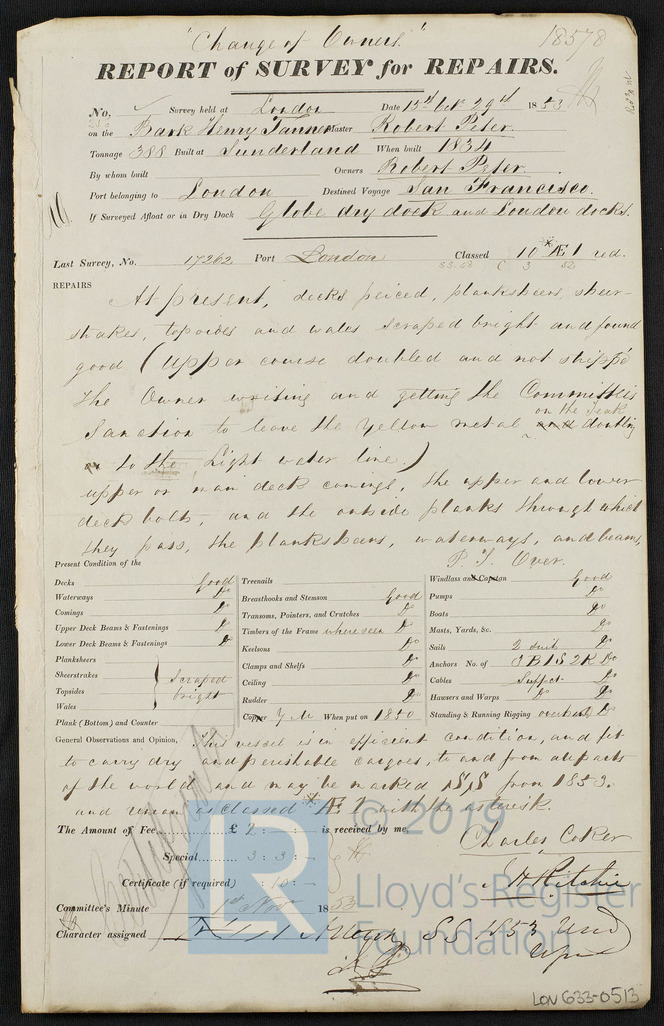 "Change of Owners"
18578
REPORT of SURVEY for REPAIRS.
No. Survey held at London Date 13th Octr 29th 1853
on the Bark Henry Tanner Master Robert Peter.
Tonnage 388 Built at Sunderland When built 1834
By whom built Owners Robert Peter.
Port belonging to London Destined Voyage San Francisco.
If Surveyed Afloat or in Dry Dock Globe dry dock and London docks.
Last Survey, No. 17262 Port London Classed 10 * Æ 1 red.
REPAIRS
At present, decks peiced, plansheers, sheer-
strakes, topsides and wales scraped bright and found
good (upper course doubled and not stripp'd
the Owner writing and getting the Committee's
on the
Sanction to leave the yellow metal and doubling
to the light water line.)
upper or main deck comings, the upper and lower
deck bolts, and the outside planks through which
they pass, the planksheers, waterways, and beams,
P. T. Over.
Present Condition of the
Decks Good
Waterways Do
Comings Do
Upper Deck Beams & Fastenings Do
Lower Deck Beams & Fastenings Do
Planksheers
Sheerstrakes
Topsides
Wales
scraped
bright
Plank (Bottom) and Counter
Treenails
Breasthooks and Stemson Good
Transoms, Pointers, and Crutches Do
Timbers of the Frame where seen Do
Keelsons Do
Clamps and Shelfs Do
Ceiling Do
Rudder Do
Copper Y M When put on 1850
Windlass and Capstan Good
Pumps Do
Boats Do
Masts, Yards, &c. Do
Sails 2 suits Do
Anchors No. of 3 B 1 S 2 K Do
Cables Suffct Do
Hawsers and Warps Do Do
Standing & Running Rigging overhauld Do
General Observations and Opinion, This vessel is in efficient condition, and fit
to carry dry and perishable cargoes, to and from all parts
of the world and may be marked SS from 1853.
and remain as classed * Æ 1 with the asterisk.
The Amount of Fee £ 2 : : is received by me,
Special 3 : 3 : -
Certificate (if required) : 10 : -
Charles Coker
J H Ritchie
Committee's Minute 1st Novr 1853
Character assigned SS 1853
© 2019
LR
Lloyd's Register
Foundation
LON 633-0513